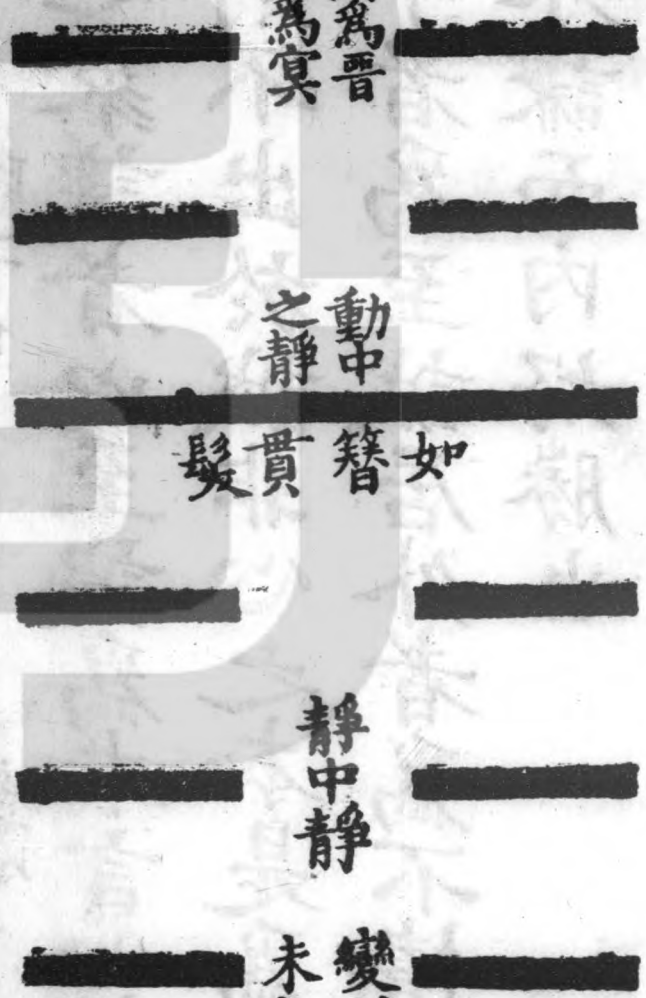 爲晉
爲冥
動中
之靜
如簪貫髮
靜中靜
變
未